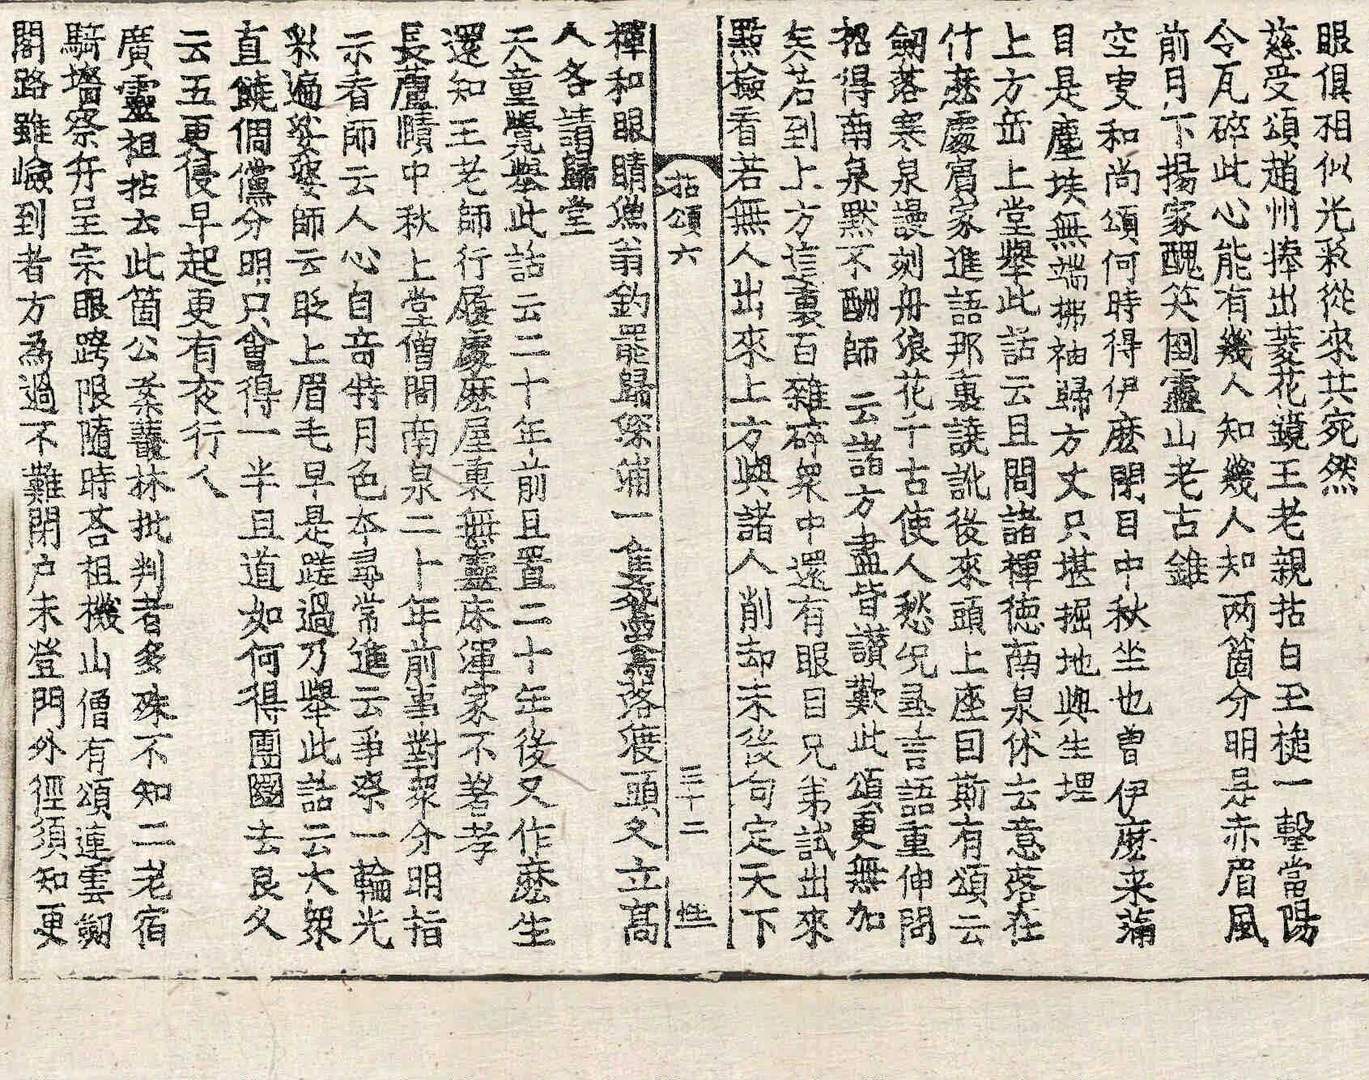 眼俱相似光彩從來共宛然
慈受頌趙州捧出菱花鏡王老親拈白玉槌一擊當陽
令瓦碎此心能有幾人知幾人知兩箇分明是赤眉風
前月下揚家醜笑倒靈山老古錐
空叟和尚頌何時得伊麽閉目中秋坐也曾伊麽来滿
目是塵埃無端拂袖歸方丈只堪掘地與生埋
上方岳上堂擧此話云且問諸禪德南泉休去意落在
什麽處賓家進語那裏誵訛後來頭上座曰斯有頌云
劒落寒泉謾刻舟浪花千古使人愁况尋言語重伸問
招得南泉默不酬師云諸方盡皆讃歎此頌更無加
矣若到上方這裏百雜碎衆中還有眼目兄弟試出來
點檢看若無人出來上方與諸人削却末後句定天下
拈頌六
三十二
性
禪和眼睛漁翁釣罷歸深浦一隻鴛鴦落渡頭久立髙
人各請歸堂
天童覺擧此話云二十年前且置二十年後又作麽生
還知王老師行履處麽屋裏無靈床渾家不著孝
長蘆賾中秋上堂僧問南泉二十年前事對衆分明指
示看師云人心自奇特月色本尋常進云爭柰一輪光
彩遍娑婆師云貶上眉毛早是蹉過乃擧此話云大衆
直饒倜儻分明只會得一半且道如何得團圓去良久
云五更侵早起更有夜行人
廣靈祖拈云此箇公案叢林批判者多殊不知二老宿
騎墻察弁呈宗眼跨限隨時荅祖機山僧有頌連雲劒
閣路雖嶮到者方為過不難閉户未登門外徑須知更